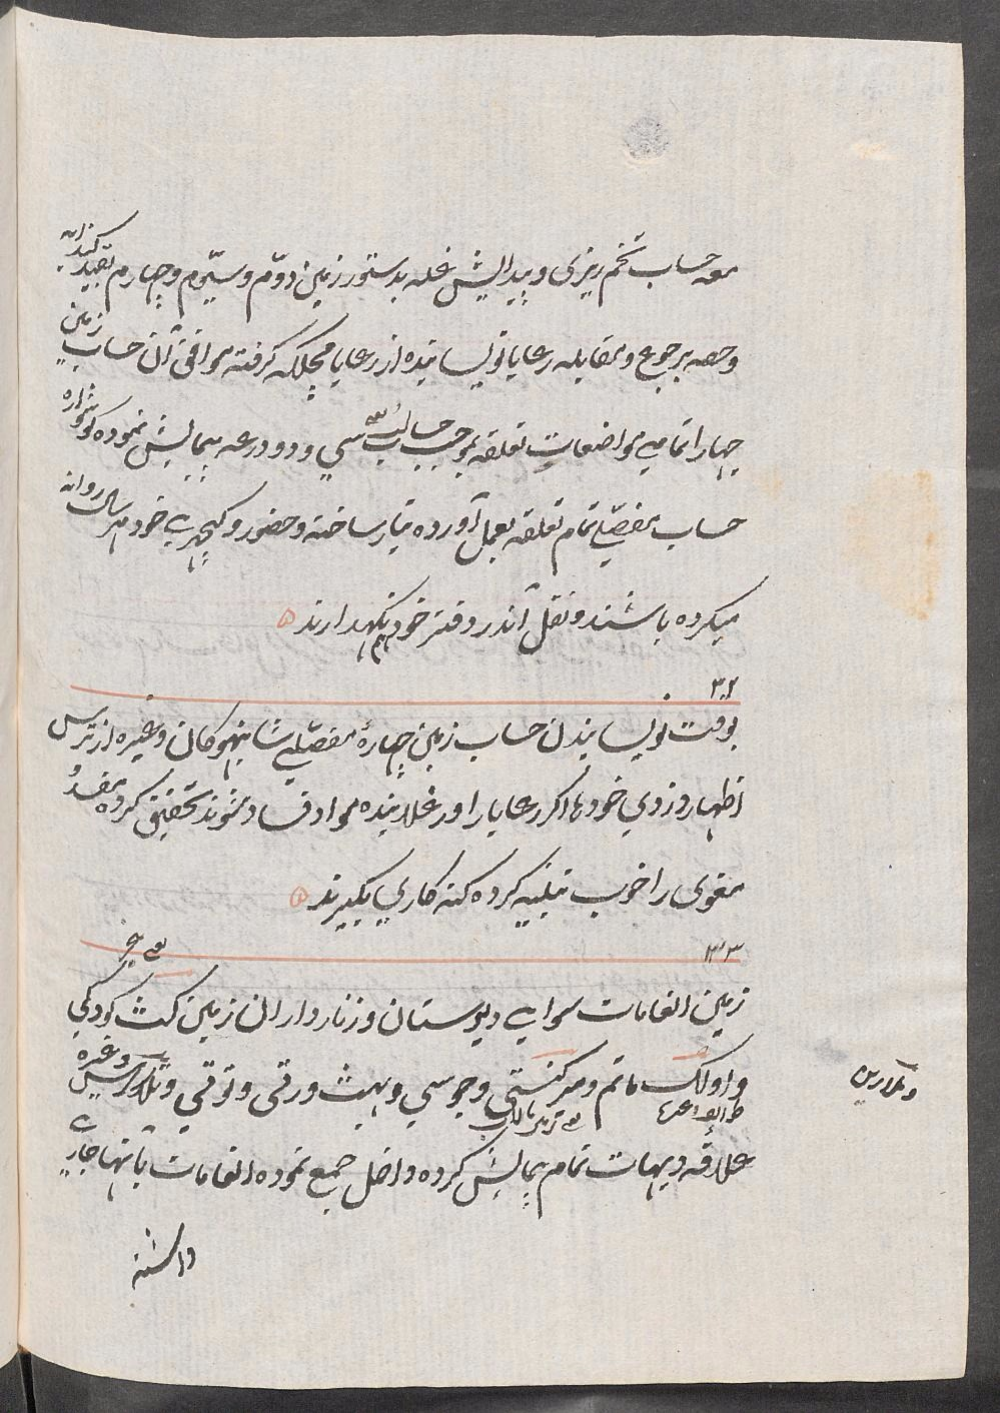 معه حساب تخم ریزی و پیدایش غله بدستور زمین دوّم و سیّوم و چهارم بقید کنند
و حصه برجوع و مقابله رعایا نویسانیده از رعایا مچلکه گرفته موافق آن حساب زمین
چهارا تمامی مواضعات تعلقه بموجب حساب سی و دو درعه پیمایش نموده گوشواره
حساب مفصّلی تمام تعلقه بعمل آورده تیار ساخته و حضور و کچهری خود روانه
میکرده باشند و نقل آن در دفتر خود نگهدارند
۳۲
بوقت نویسانیدن حساب زمین چهاره مفصّلی شانبهوکان و غیره از ترس
اظهار دزدی خودها اگر رعایا را ورغلانیده مواد فساد شوند تحقیق کرده مفسد
مغوی را خوب تنبیه کرده گنه کاری بگیرند
۳۳
زمین انعامات سوای دیوستان و زنارداران زمین کت کودکی
و اولک ماتم و مرکنستی و جوسی و بهت ورقی و توقی و تلارین وغیره
و تلارین
علاقه دیهات تمام پیمایش کرده داخل جمع نموده انعامات بآنها جاری
داشته